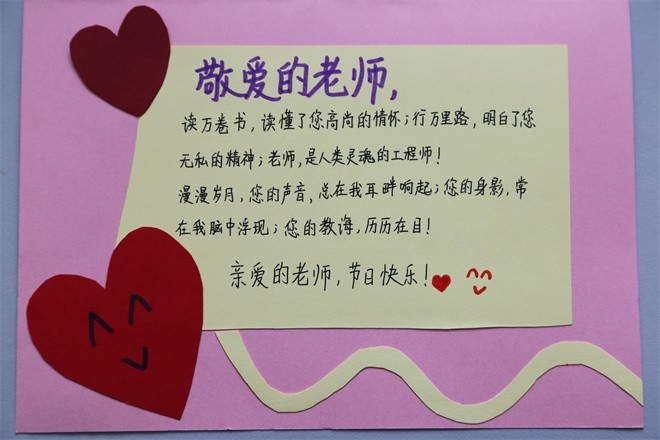 敬爱的老师,
读万卷书,读懂了您高尚的情怀;行万里路,明白了您
无私的精神;老师,是人类灵魂的工程师!
漫漫岁月,您的声音、总在我耳畔响起;您的身影,常
在我脑中浮现;您的教诲,历历在目!
亲爱的老师,节日快乐!